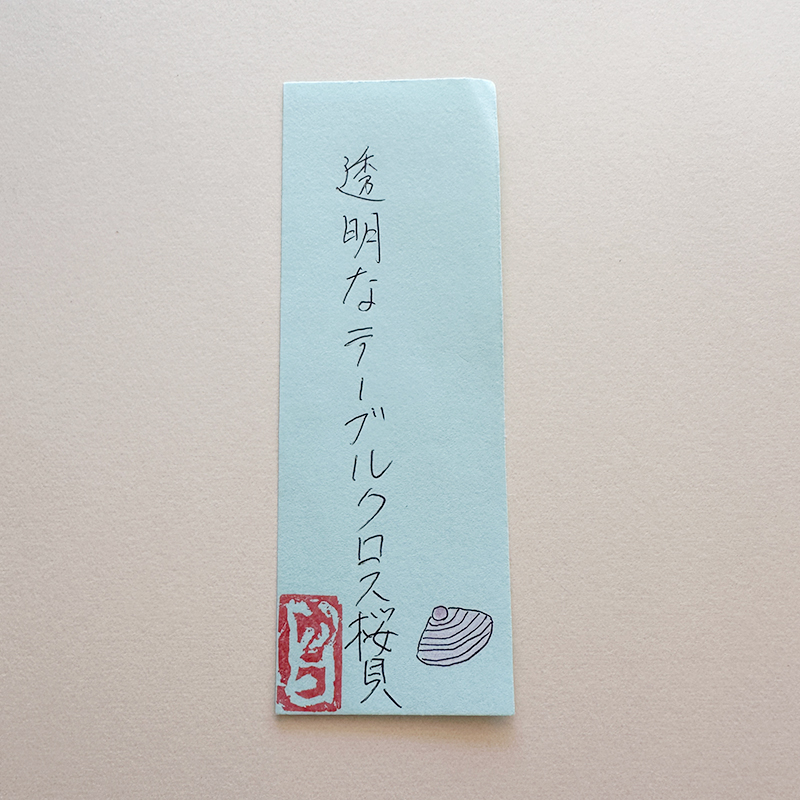 透明なテーブルクロス桜貝